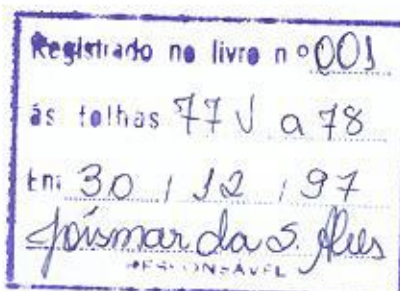 Registrado no livro nº 001
às folhas 77V a 78
Em 30 / 12 / 97
Joismar da S. Alves
RESPONSÁVEL